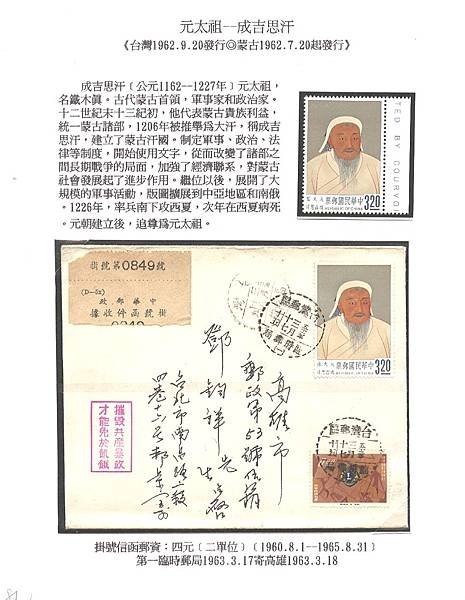 元太祖--成吉思汗
《台灣1962.9.20發行◎蒙古1962.7.20起發行》
成吉思汗﹝公元1162--1227年﹞元太祖，
名鐵木真。古代蒙古首領，軍事家和政治家。
十二世紀末十三紀初，他代表蒙古貴族利益，
統一蒙古諸部，1206年被推舉為大汗，獨成吉
思汗，建立了蒙古汗國。制定軍事、政治、法
律等制度，開始使用文字，從而改變了諸部之
間長期戰爭的局面，加強了經濟聯系，對蒙古
社會發展起了進步作用。繼位以後，展開了大
規模的軍事活動，版圖擴展到中亞地區和南俄
。1226年，率兵南下攻西夏，次年在西夏病死
。元朝建立後，追尊為元太祖。
TED BY COURVO
3.20
中華民國郵票
REPUBLIC OF CHINA
掛號第0849號
(D-52)
中華郵政
掛號函件收據
0849
中華民國郵票
3.20
高雄市
郵政第53號信箱
鄧鈞祥先生
摧毀共產暴政
才能免於飢餓
台北市南昌路
掛號信函郵資：四元﹝二單位﹞﹝1960.8.1--1965.8.31﹞
第一臨時郵局1963.3.17寄高雄1963.3.18